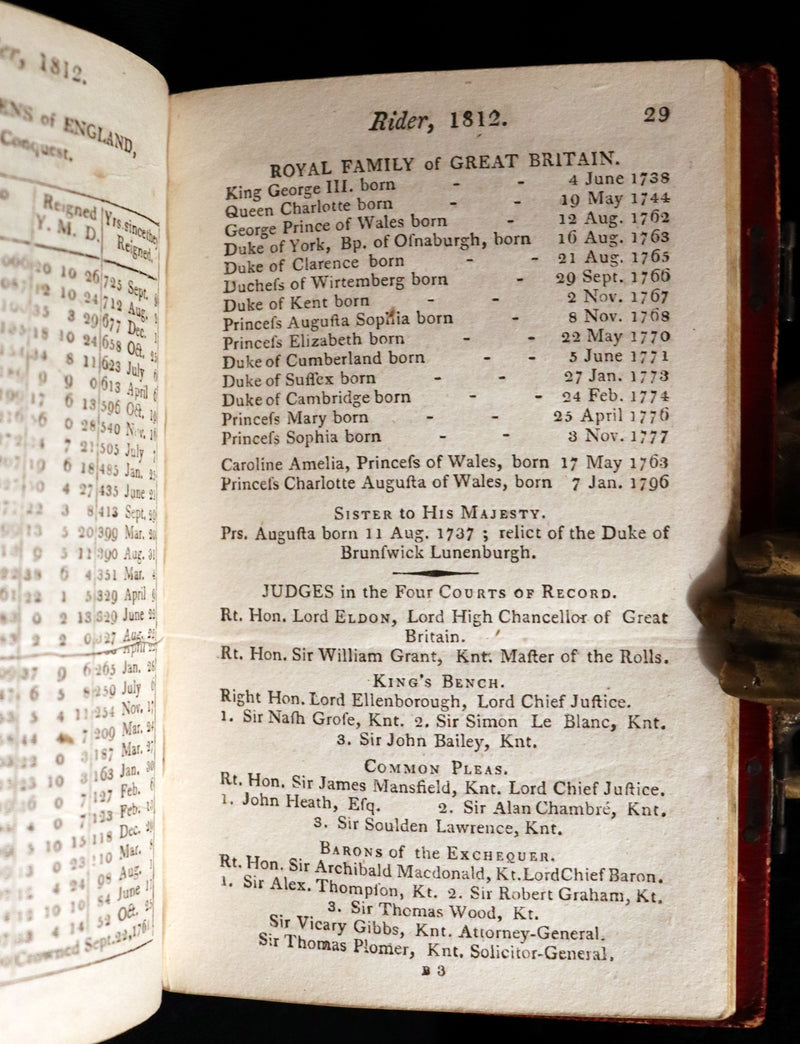 er, 1812.
ENS of ENGLAND,
Conquest.
Reigned Yrs. since they
Y. M. D. Reigned.
10 26 725 Sept.
10 24 712 Aug.
3 29 677 Dec.
10 24 658 Oct.
8 11 623 July
9 0 613 April
6 13 596 Oct.
0 28 540 Nov.
7 21 505 July
6 18 485 Jan.
4 27 435 June
3 8 413 Sept.
5 20 399 Mar.
3 11 390 Aug.
6 4 351 Mar.
1 5 329 April
2 13 329 June
2 0 327 Aug.
9 6 265 Jan.
5 8 259 July
4 11 254 Nov.
7 209 Mar.
3 187 Mar.
3 163 Jan.
7 127 Feb.
7 123 Feb.
10 15 118 Dec.
0 23 110 Mar.
4 24 98 Aug.
10 10 84 June
4 14 52 Oct.
Crowned Sept. 22, 176
Rider, 1812. 29
ROYAL FAMILY of GREAT BRITAIN.
King George III. born - - 4 June 1738
Queen Charlotte born - - 19 May 1744
George Prince of Wales born - 12 Aug. 1762
Duke of York, Bp. of Oſnaburgh, born 16 Aug. 1763
Duke of Clarence born - - 21 Aug. 1765
Ducheſs of Wirtemberg born - 29 Sept. 1766
Duke of Kent born - - 2 Nov. 1767
Princeſs Auguſta Sophia born - 8 Nov. 1768
Princeſs Elizabeth born - - 22 May 1770
Duke of Cumberland born - - 5 June 1771
Duke of Suſſex born - - 27 Jan. 1773
Duke of Cambridge born - - 24 Feb. 1774
Princeſs Mary born - - 25 April 1776
Princeſs Sophia born - - 3 Nov. 1777
Caroline Amelia, Princeſs of Wales, born 17 May 1763
Princeſs Charlotte Auguſta of Wales, born 7 Jan. 1796
SISTER to HIS MAJESTY.
Prs. Auguſta born 11 Aug. 1737 ; relict of the Duke of
Brunſwick Lunenburgh.
JUDGES in the Four COURTS OF RECORD.
Rt. Hon. Lord ELDON, Lord High Chancellor of Great
Britain.
Rt. Hon. Sir William Grant, Knt. Maſter of the Rolls.
KING'S BENCH.
Right Hon. Lord Ellenborough, Lord Chief Juſtice.
1. Sir Naſh Groſe, Knt. 2. Sir Simon Le Blanc, Knt.
3. Sir John Bailey, Knt.
COMMON PLEAS.
Rt. Hon. Sir James Mansfield, Knt. Lord Chief Juſtice.
1. John Heath, Eſq. 2. Sir Alan Chambré, Knt.
3. Sir Soulden Lawrence, Knt.
BARONS of the EXCHEQUER.
Rt. Hon. Sir Archibald Macdonald, Kt. Lord Chief Baron.
1. Sir Alex. Thompſon, Kt. 2. Sir Robert Graham, Kt.
3. Sir Thomas Wood, Kt.
Sir Vicary Gibbs, Knt. Attorney-General.
Sir Thomas Plomer, Knt. Solicitor-General.
B 3